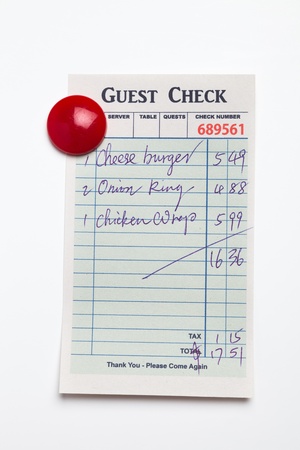 GUEST CHECK
SERVER TABLE QUESTS CHECK NUMBER
689561
1 Cheese burger 5 49
2 Onion Ring 4 88
1 Chicken Wrap 5 99
16 36
TAX 1 15
TOTAL 17 51
Thank You - Please Come Again